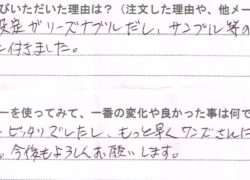 びいただいた理由は？（注文した理由や、他メー
設定がリーズナブルだし、サンプル等の
に付きました。
ーを使ってみて、一番の変化や良かった事は何で
ピッタリズレたし、もっと早くワンズさんに
。今後もよろしくお願いします。